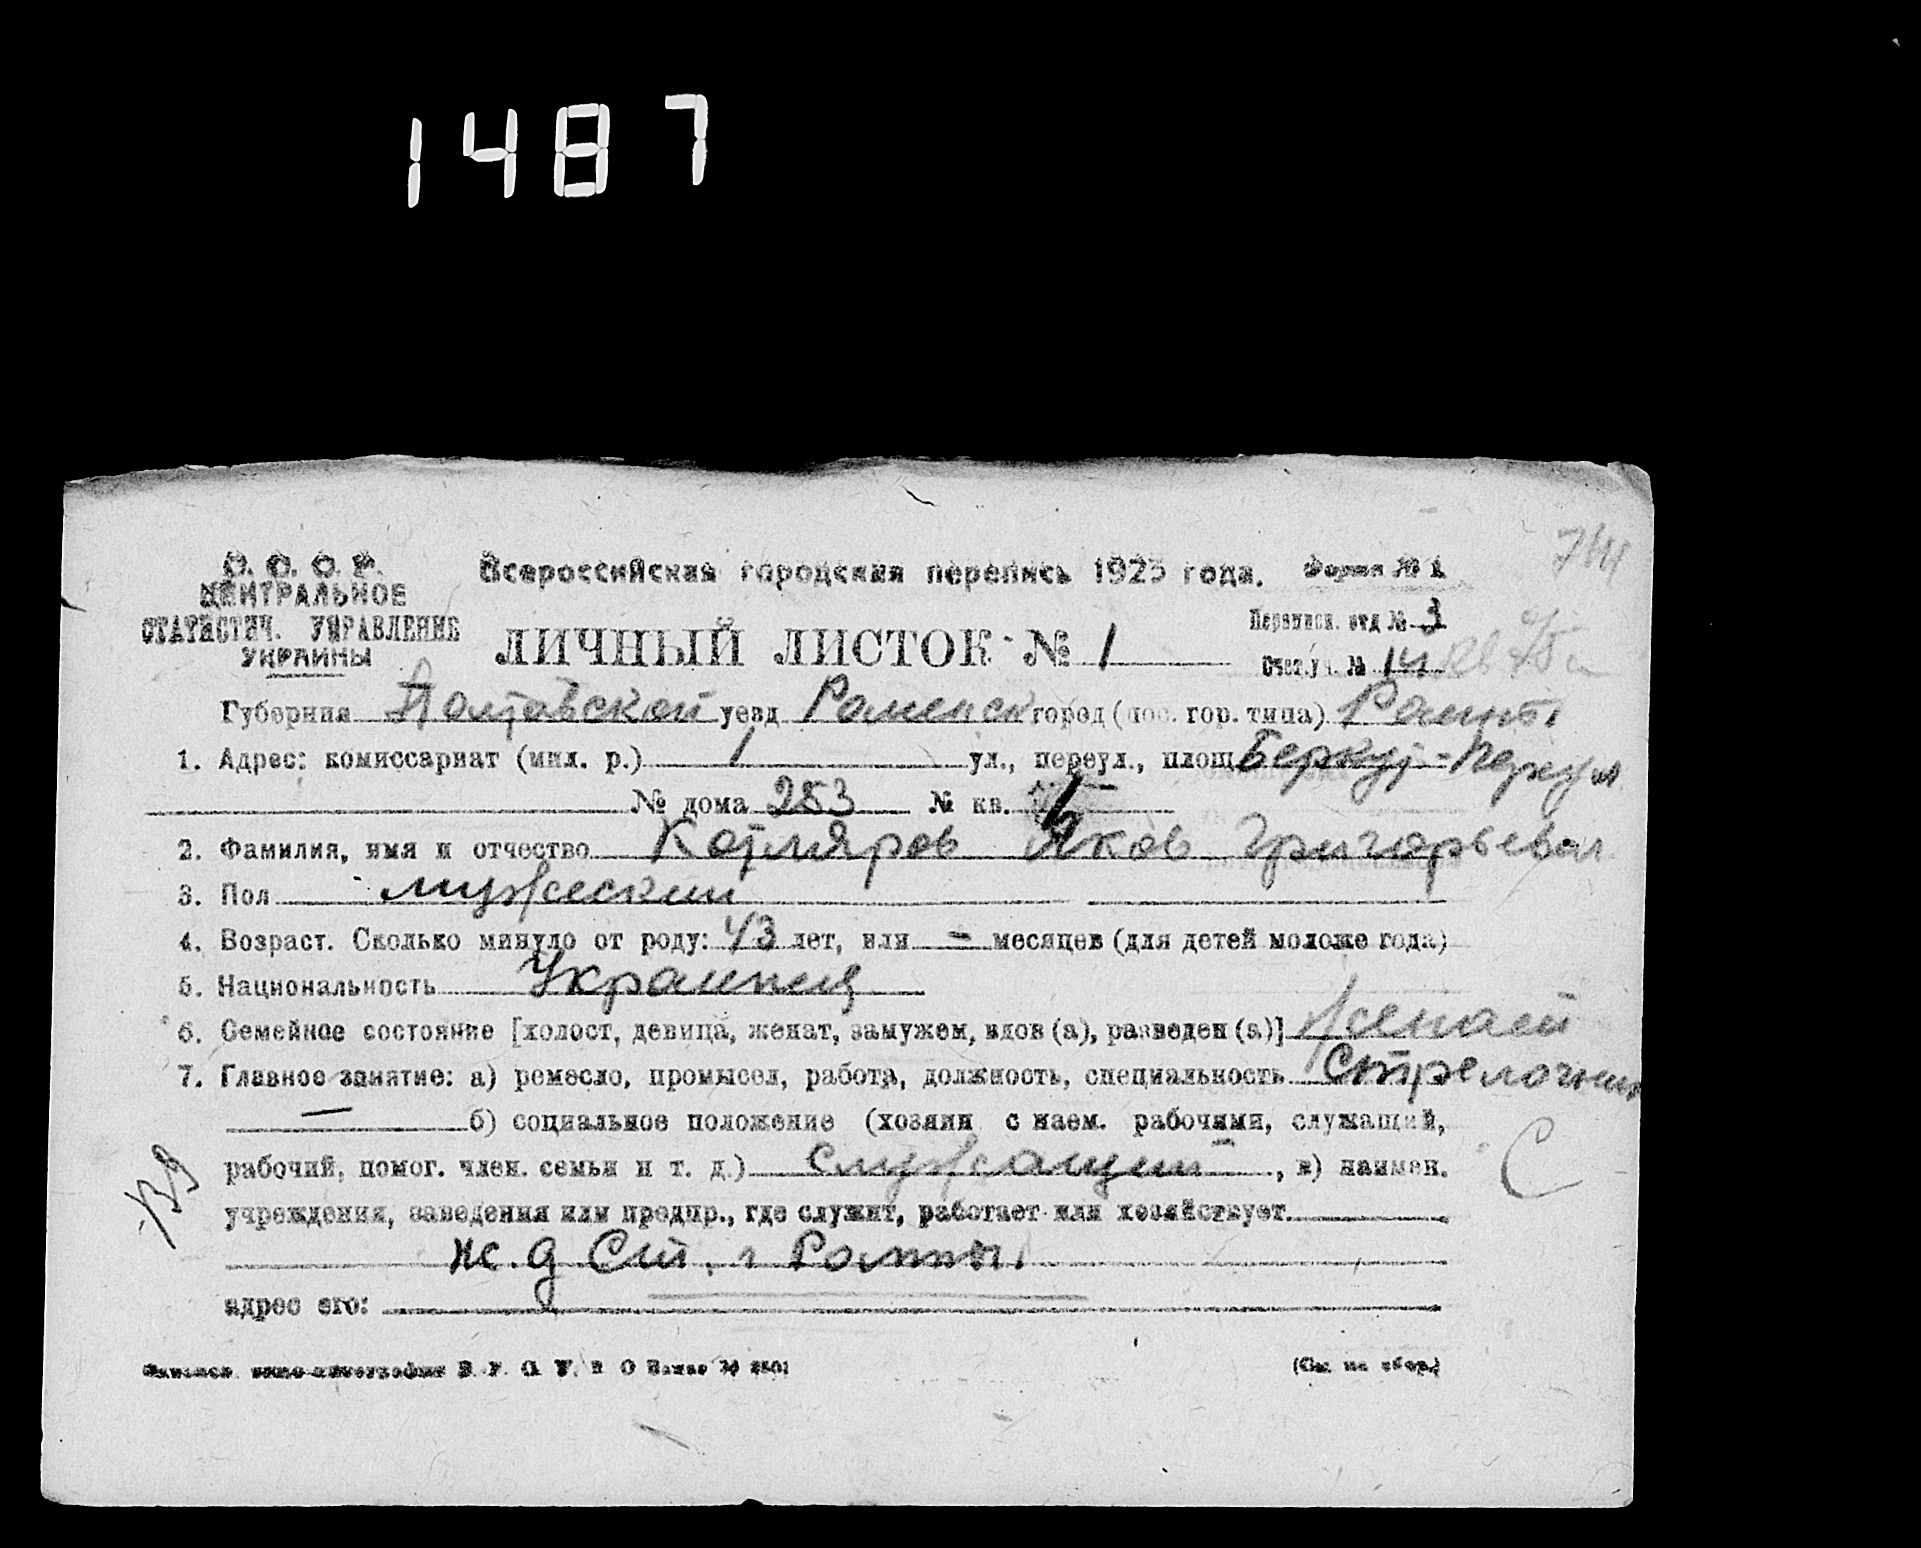 1487
714
С. С. С. Р. Всероссийская городская перепись 1923 года. Форма № 1
ЦЕНТРАЛЬНОЕ
СТАТИСТИЧ. УПРАВЛЕНИЕ
УКРАИНЫ
ЛИЧНЫЙ ЛИСТОК № 1
Переписн. отд № 3
Счет.уч. № 14
Губерния Полтавской уезд Роменск город (пос. гор. типа) Ромны
1. Адрес: комиссариат (мил. р.) 1 ул., переул., площ
№ дома 253 № кв.
2. Фамилия, имя и отчество Котляров Яков Григорьевич
3. Пол мужеский
4. Возраст. Сколько минуло от роду: 43 лет, или - месяцев (для детей моложе года)
5. Национальность Украинец
6. Семейное состояние [холост, девица, женат, замужем, вдов (а), разведен (а)] Женатый
7. Главное занятие: а) ремесло, промысел, работа, должность, специальность Стрелочник
— б) социальное положение (хозяин с наем. рабочими, служащий,
рабочий, помог. член. семьи и т. д.) Служащий, в) наимен.
С
учреждения, заведения или предпр., где служит, работает или хозяйствует
ж. д Ст. г Ромны
адрес его:
(См. на обор.)